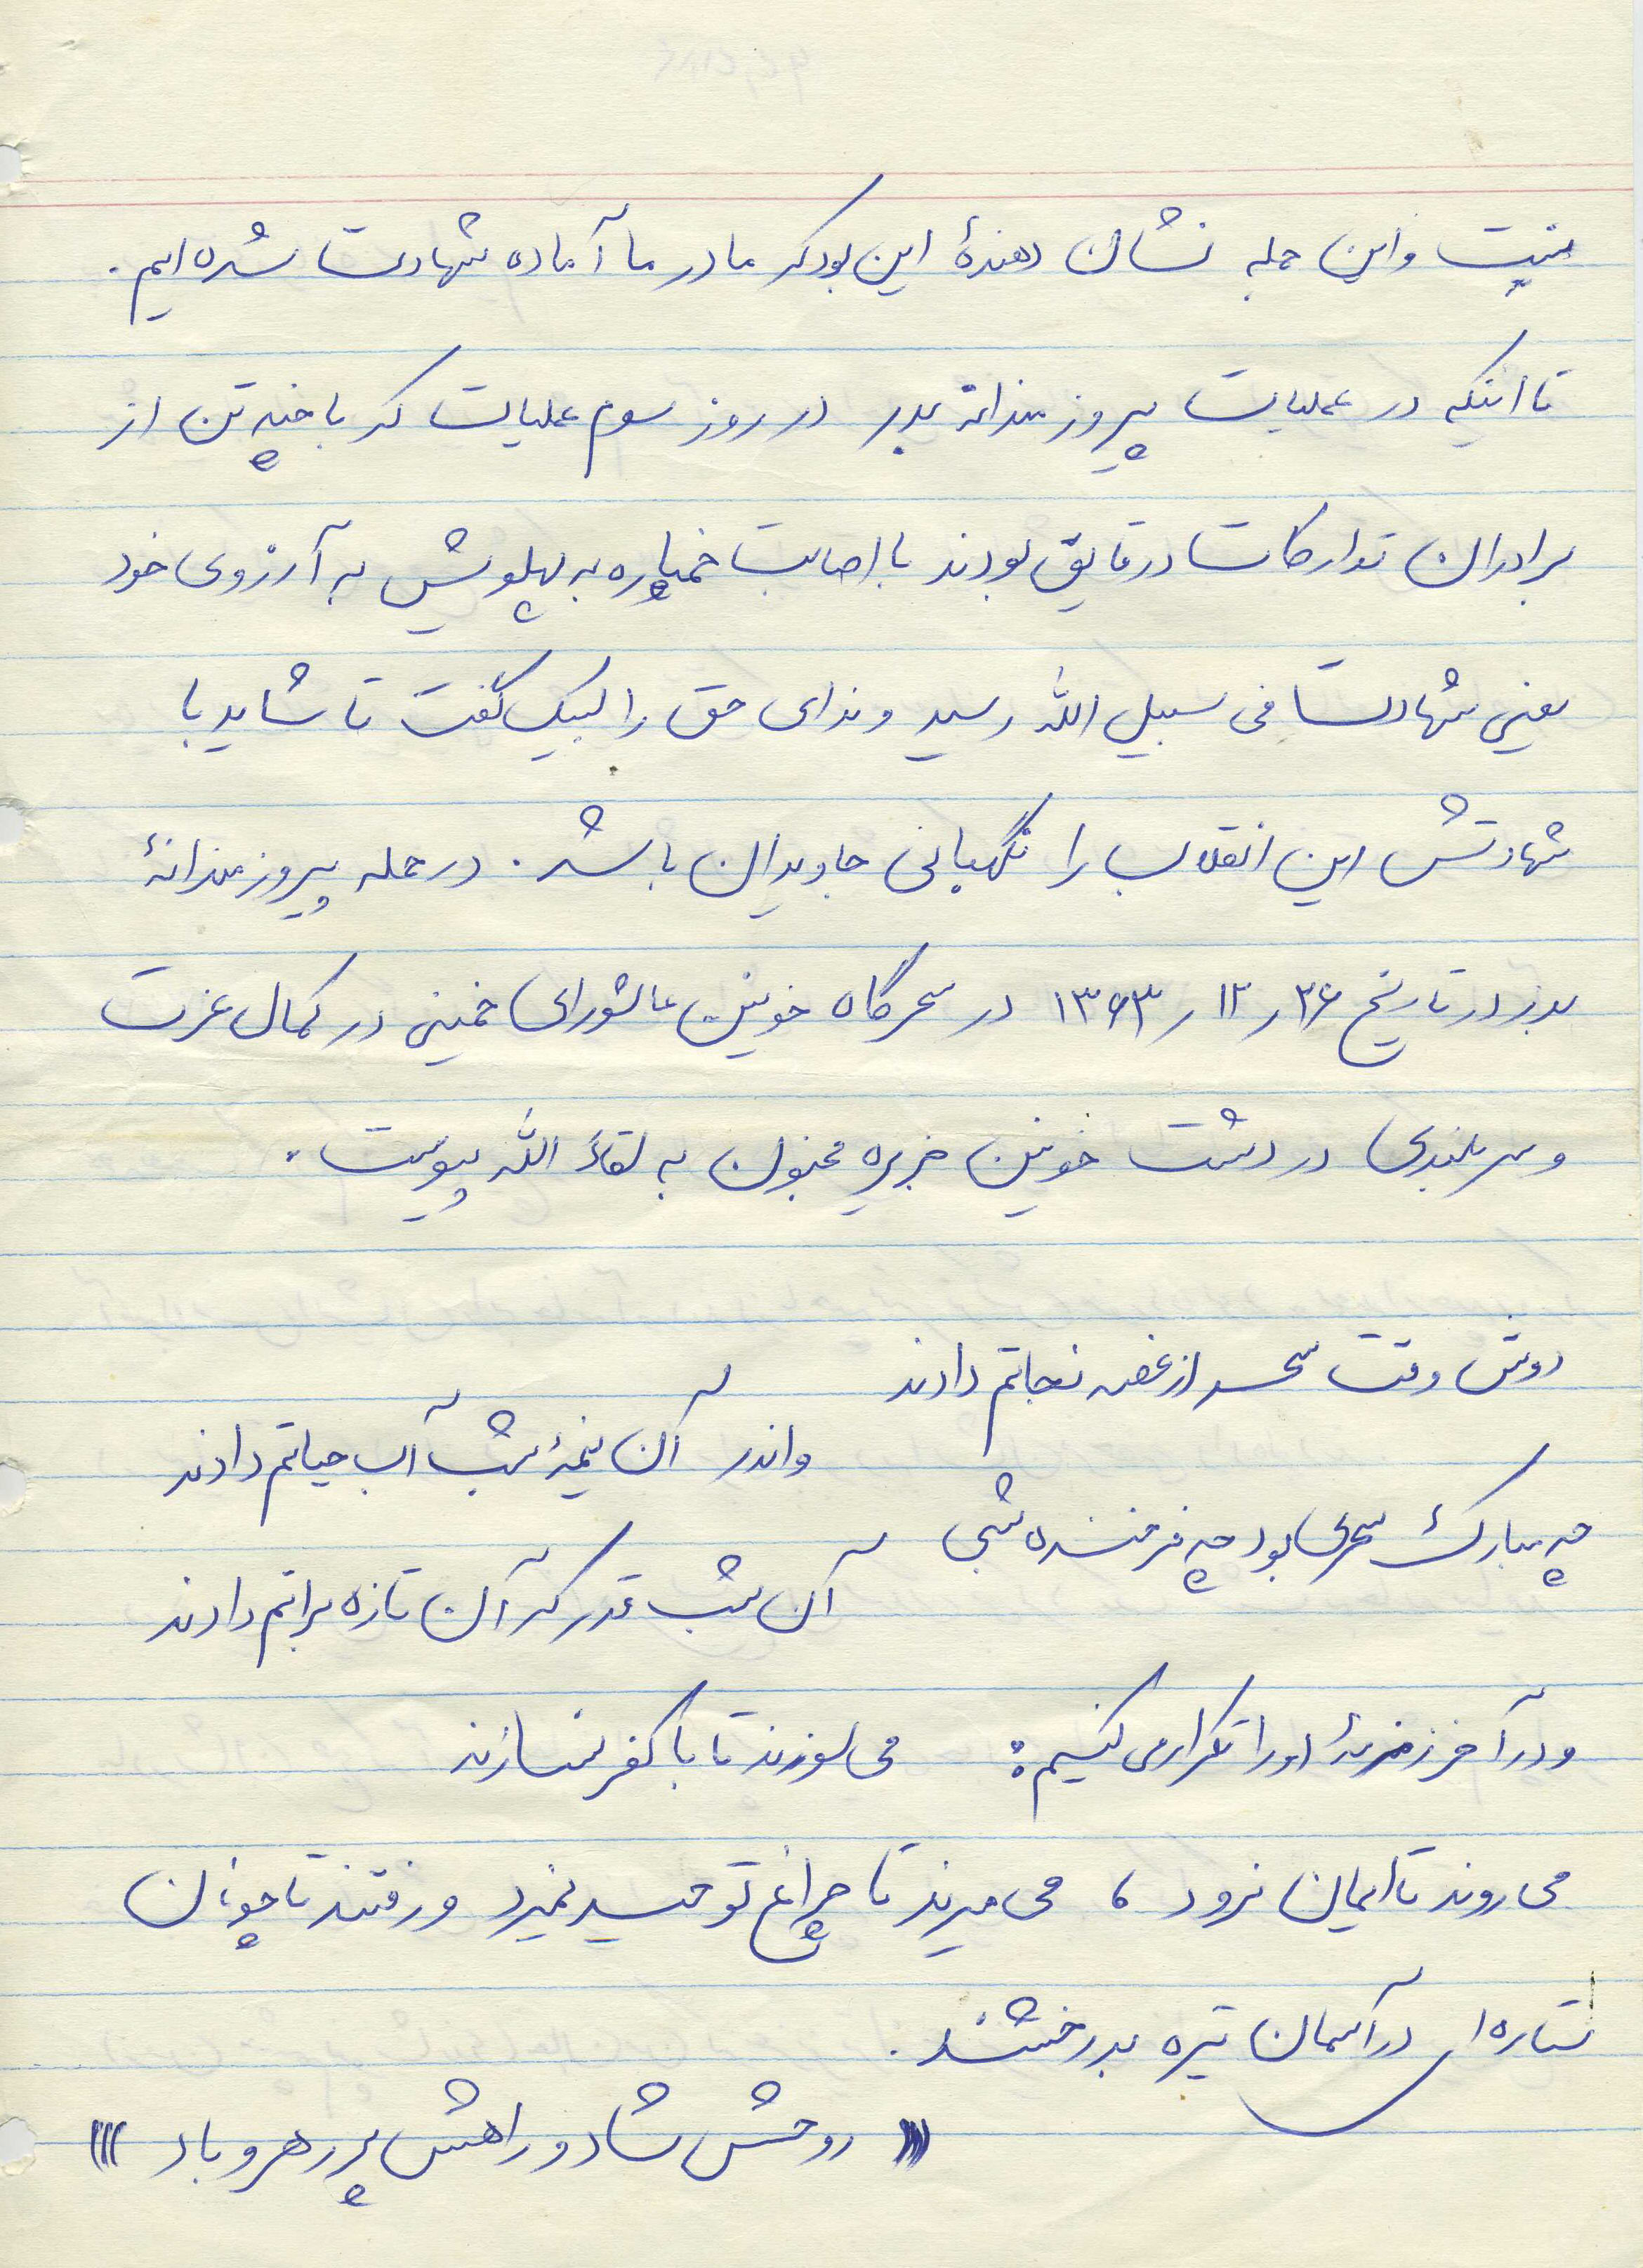 نیست و این جمله نشان دهندهٔ این بود که مادر ما آماده شهادت شده ایم.
تا اینکه در عملیات پیروزمندانه بدر در روز سوم عملیات که با چند تن از
برادران تدارکات در قایق بودند با اصابت خمپاره به پهلویش به آرزوی خود
یعنی شهادت فی سبیل الله رسید و ندای حق را لبیک گفت تا شاید با
شهادتش این انقلاب را نگهبانی جاویدان باشد. در حمله پیروزمندانهٔ
بدر در تاریخ ۲۶ر۱۲ر۱۳۶۳ در سحرگاه خونین عاشورای خمینی در کمال عزت
و سربلندی در دشت خونین جزیره مجنون به لقاء الله پیوست.
دوش وقت سحر از غصه نجاتم دادند
واندر آن نیمهٔ شب آب حیاتم دادند
چه مبارک سحری بود چه فرخنده شبی
آن شب قدر که آن تازه براتم دادند
و در آخر زمزمهٔ او را تکرار می کنیم: می سوزند تا با کفر نسازند
می روند تا ایمان نرود، می میرند تا چراغ توحید نمیرد و رفتند تا چونان
ستاره ای در آسمان تیره بدرخشند.
((( روحش شاد و راهش پر رهرو باد )))